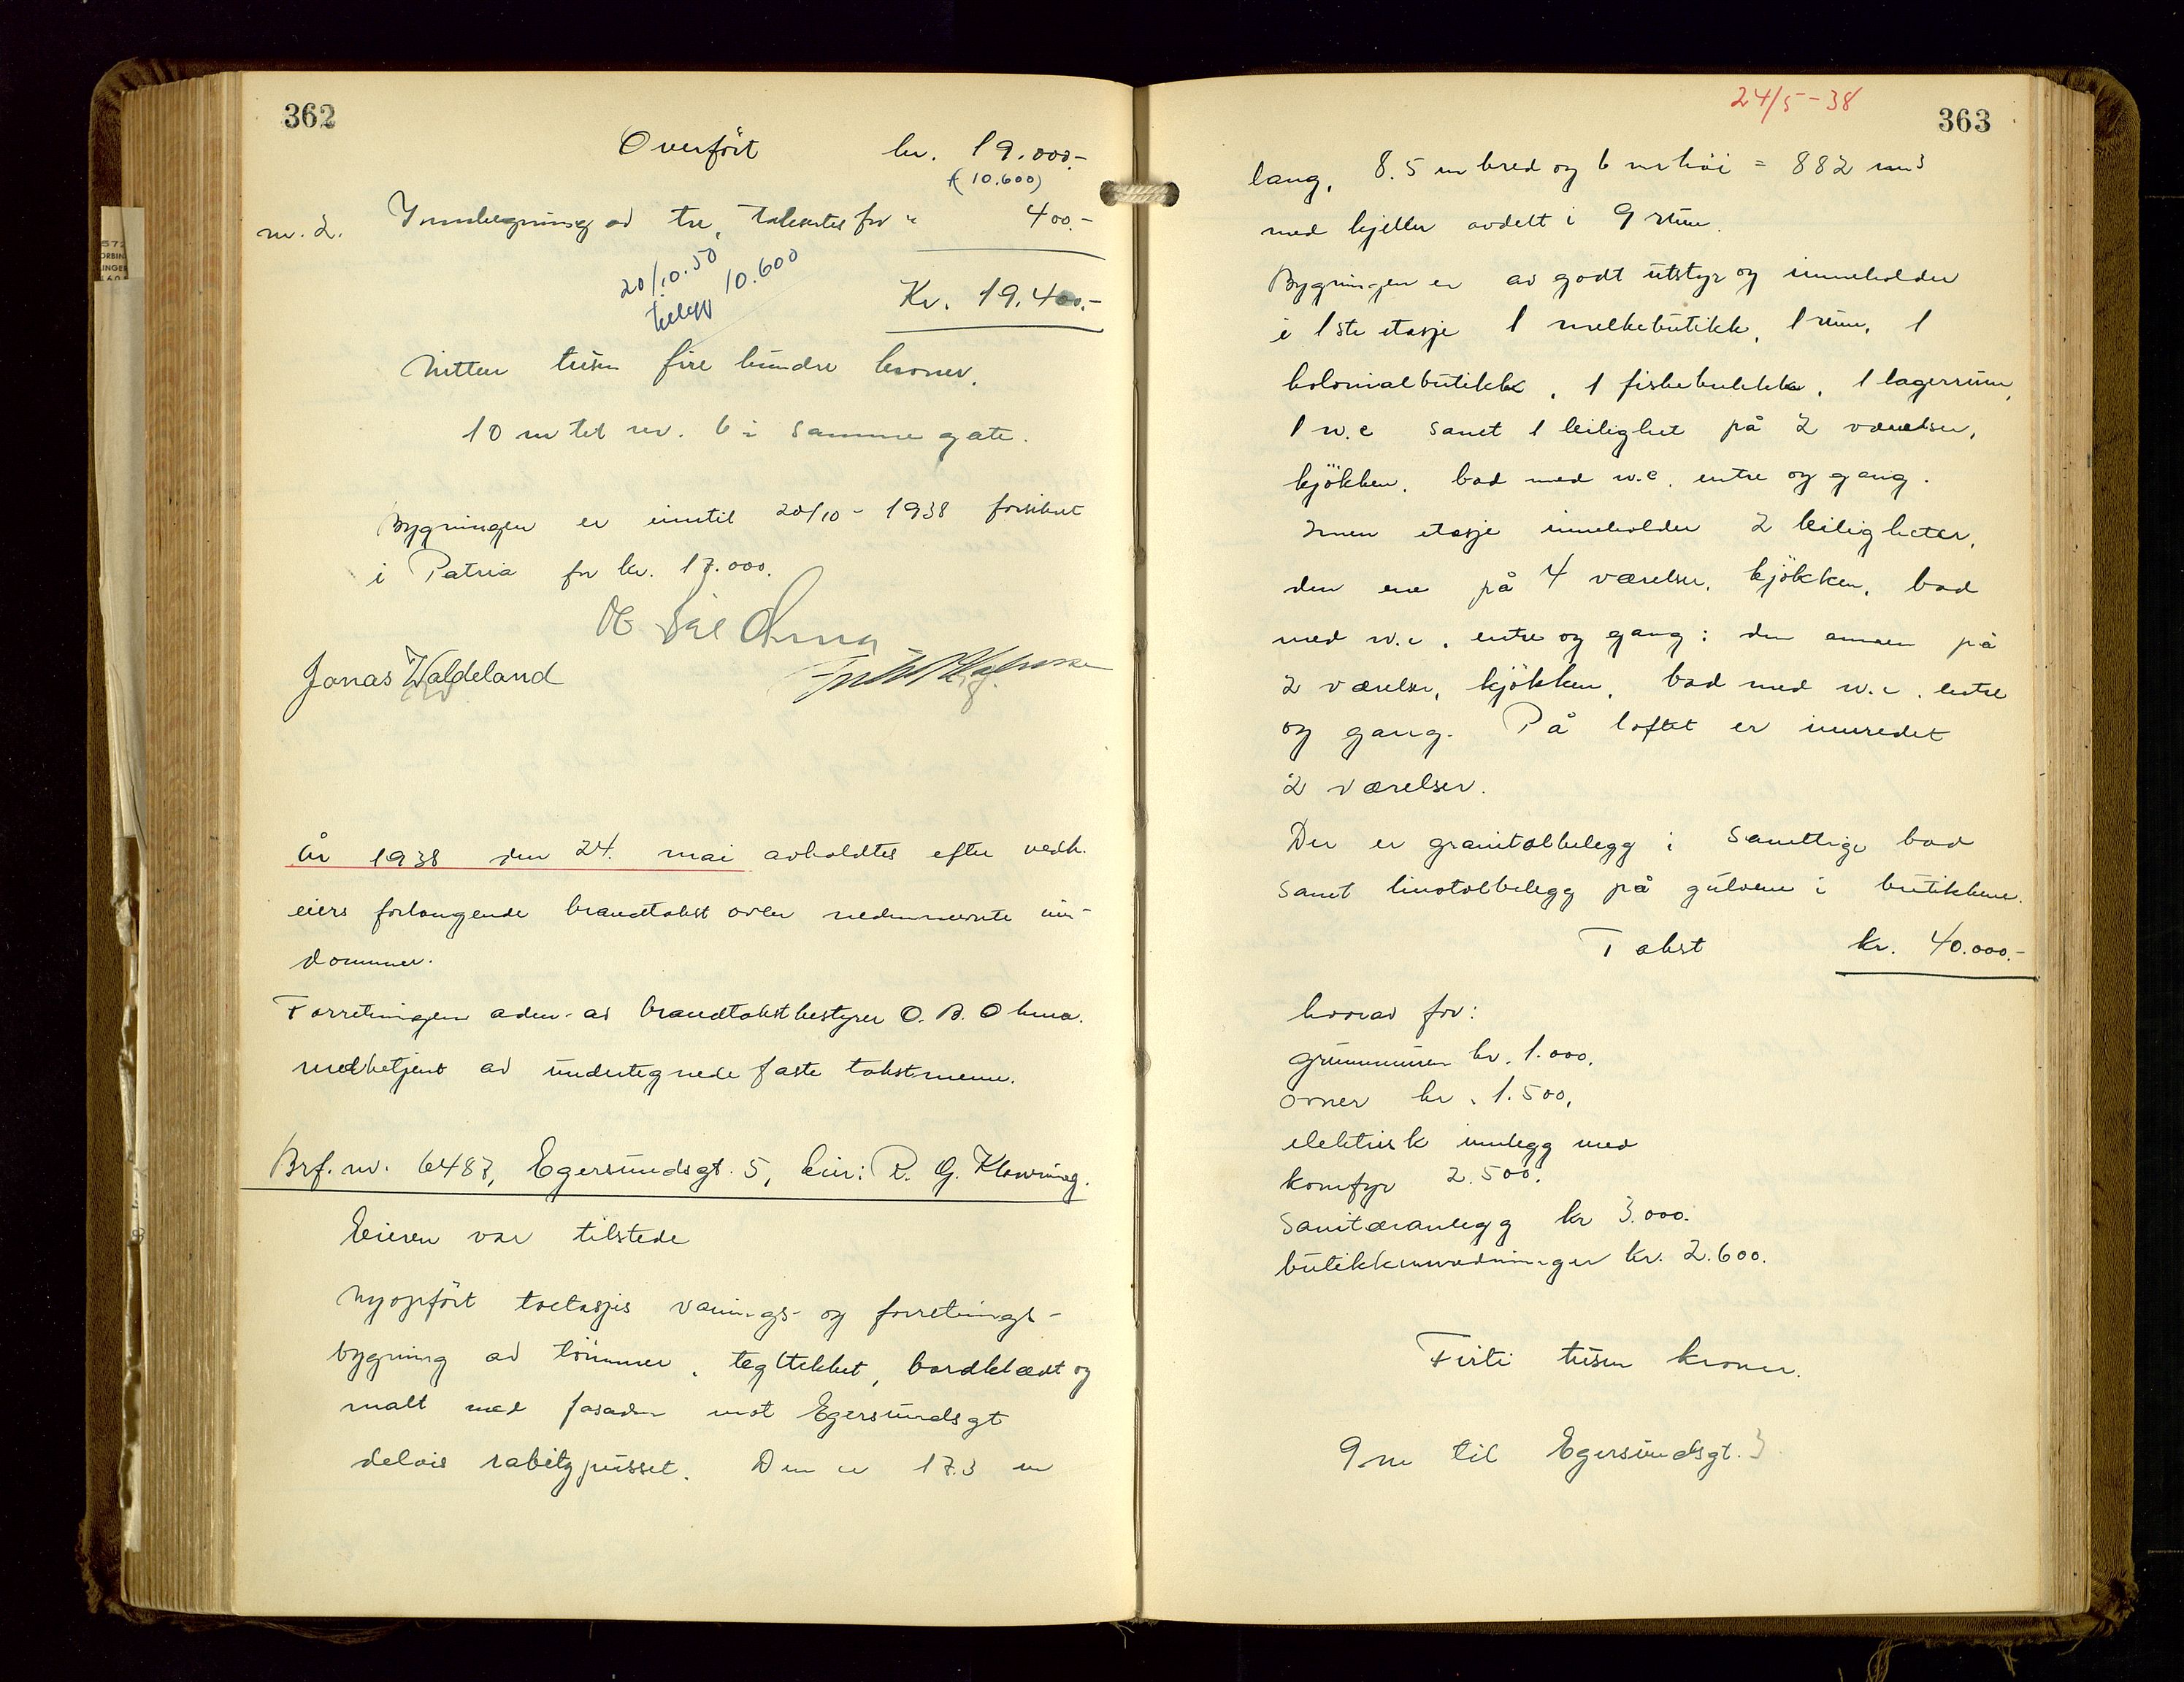 362
Overført kr. 19.000.-
(10.600)
nr. 2. Innbygning av tre, takseres for " 400.-
20/10.50
tilegg 10.600
Kr. 19.400.-
Nitten tusen fire hundre kroner.
10 m til nr. 6 i samme gate.
Bygningen er inntil 20/10 - 1938 forsikret
i Patria for kr. 17.000.
Jonas Waldeland
År 1938 den 24. mai avholdtes efter vedk.
eiers forlangende brandtakst over nedennevnte eien-
dommer.
Forretningen adm. av brandtakstbestyrer O. B. Ohma.
medbetjent av undertegnede faste takstmenn.
Brf. nr. 6487, Egersundsgt. 5, eier: R. G. Klovning.
Eieren var tilstede
Nyopført toetasjes vånings- og forretnings-
bygning av tømmer, tegltekket, bordklædt og
malt med fasaden mot Egersundsgt
delvis rabitzpusset. Den er 17.3 m
24/5-38
363
lang, 8.5 m bred og 6 m høi = 882 m3
med kjeller avdelt i 9 rum.
Bygningen er av godt utstyr og inneholder
i 1ste etasje 1 melkebutikk, 1 rum, 1
kolonialbutikk, 1 fiskebutikk, 1 lagerrum,
1 w.c samt 1 leilighet på 2 værelser,
kjøkken, bad med w.c. entre og gang.
2nnen etasje inneholder 2 leiligheter,
den ene på 4 værelser, kjøkken, bad
med w.c., entre og gang; den annen på
2 værelser, kjøkken, bad med w.c. entre
og gang. På loftet er innredet
2 værelser.
Der er granitolbelegg i samtlige bad
samt linotolbelegg på gulvene i butikkene.
Takst kr. 40.000.-
hvorav for:
grunnmuren kr. 1.000.
ovner kr. 1.500,
elektrisk innlegg med
komfyr 2.500.
Sanitæranlegg kr 3.000.
butikkinnredninger kr. 2.600.
Førti tusen kroner.
9 m til Egersundsgt. 3